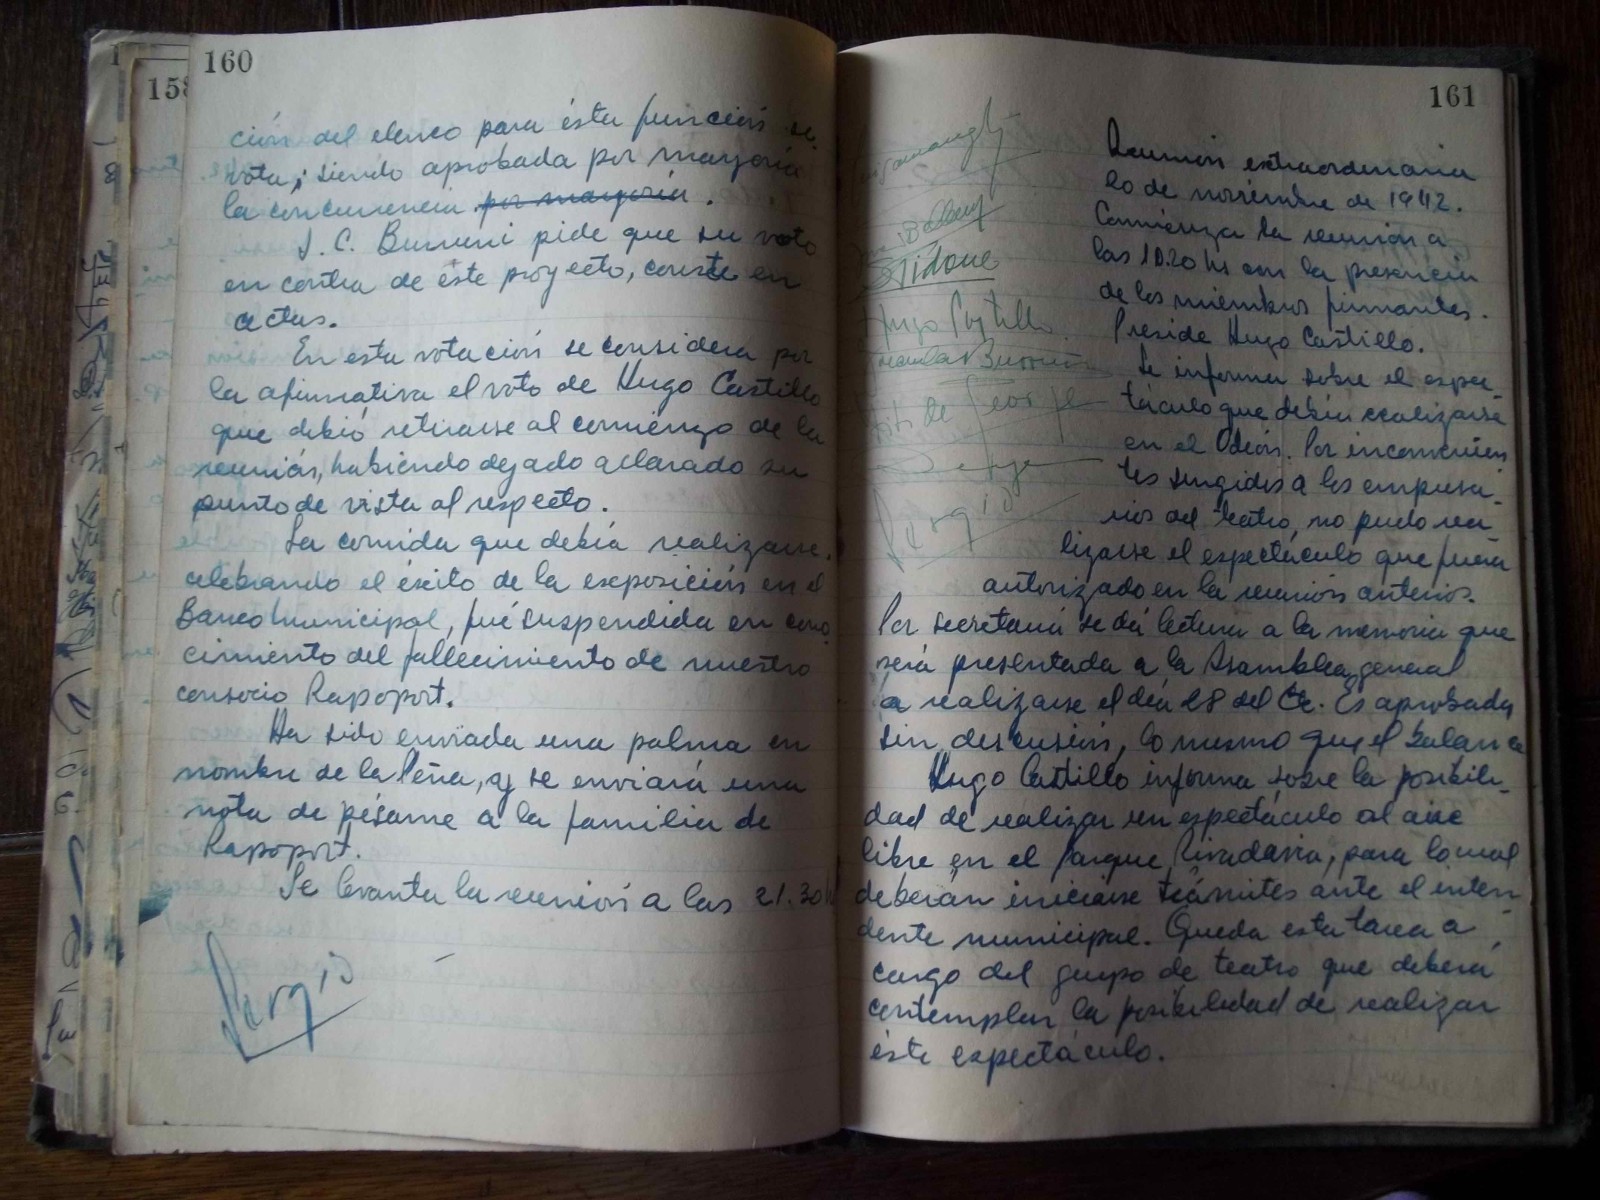 160
158
ción del elenco para ésta función se
vota, siendo aprobada por mayoría
la concurrencia por mayoría.
en contra de este proyecto, conste en
actas.
En esta votación se considera por
la afirmativa el voto de Hugo Castillo
que debió retirarse al comienzo de la
reunión, habiendo dejado aclarado su
punto de vista al respecto.
La comida que debía realizarse,
celebrando el éxito de la exposición en el
Banco Municipal, fué suspendida en cono
cimiento del fallecimiento de nuestro
consocio Rapoport.
Ha sido enviada una palma en
nombre de la Peña, y se enviará una
nota de pésame a la familia de
Rapoport.
Se levanta la reunión a las 21.30 h
Sergio
161
Tidone
Hugo Castillo
Sergio
Reunión extraordinaria
20 de noviembre de 1942.
Comienza la reunión a
las 19.20 hs con la presencia
de los miembros firmantes.
Preside Hugo Castillo.
Se informa sobre el espec-
táculo que debía realizarse
en el Odeón. Por inconvenien
tes surgidos a los empresa-
rios del teatro, no pudo rea
lizarse el espectáculo que fuera
autorizado en la reunión anterior.
Por secretaría se dá lectura a la memoria que
será presentada a la Asamblea general
a realizarse el día 28 del cte. Es aprobada
sin discusión, lo mismo que el Balance
Hugo Castillo informa sobre la posibili-
dad de realizar un espectáculo al aire
libre en el Parque Rivadavia, para lo cual
deberán iniciarse trámites ante el inten
dente municipal. Queda esta tarea a
cargo del grupo de teatro que deberá
contemplar la posibilidad de realizar
éste espectáculo.